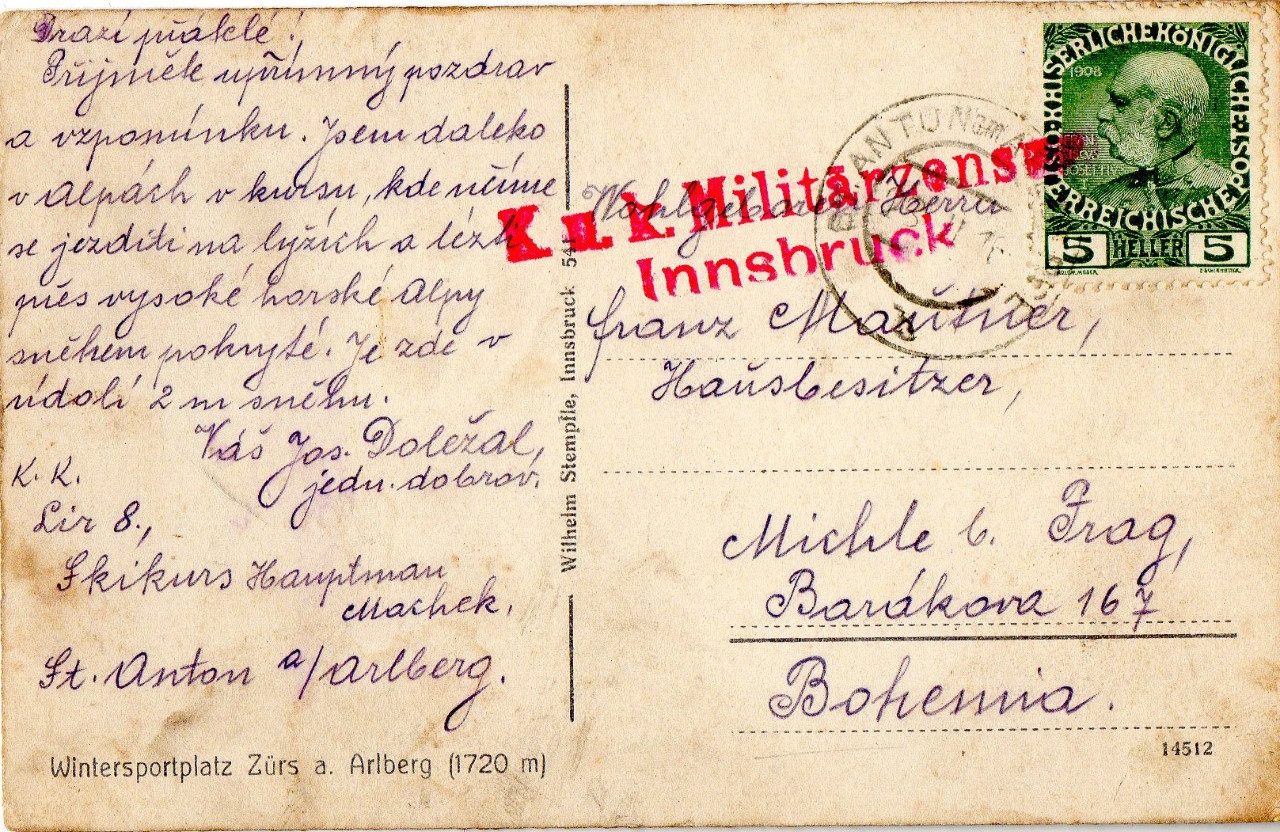 Drazí přátelé!
Přijměte upřímný pozdrav
a vzpomínku. Jsem daleko
v Alpách v kursu, kde učíme
se jezditi na lyžích a lézti
přes vysoké horské Alpy
sněhem pokryté. Je zde v
údolí 2 m sněhu.
Váš Jos. Doležal,
jedn. dobrov.
K. K.
Lir 8.,
Skikurs Hauptman
Machek.
St. Anton a/Arlberg.
Wintersportplatz Zürs a. Arlberg (1720 m)
Wilhelm Stempfle, Innsbruck 541
K.u.k. Militärzens
Innsbruck
ST ANTON am A
KAISERLICHEKÖNIGLICHE
ÖSTERREICHISCHEPOST
1908
5 HELLER 5
Wohlgeboren Herrn
Franz Mautner,
Hausbesitzer,
Michle b. Prag,
Barákova 167
Bohemia.
14512